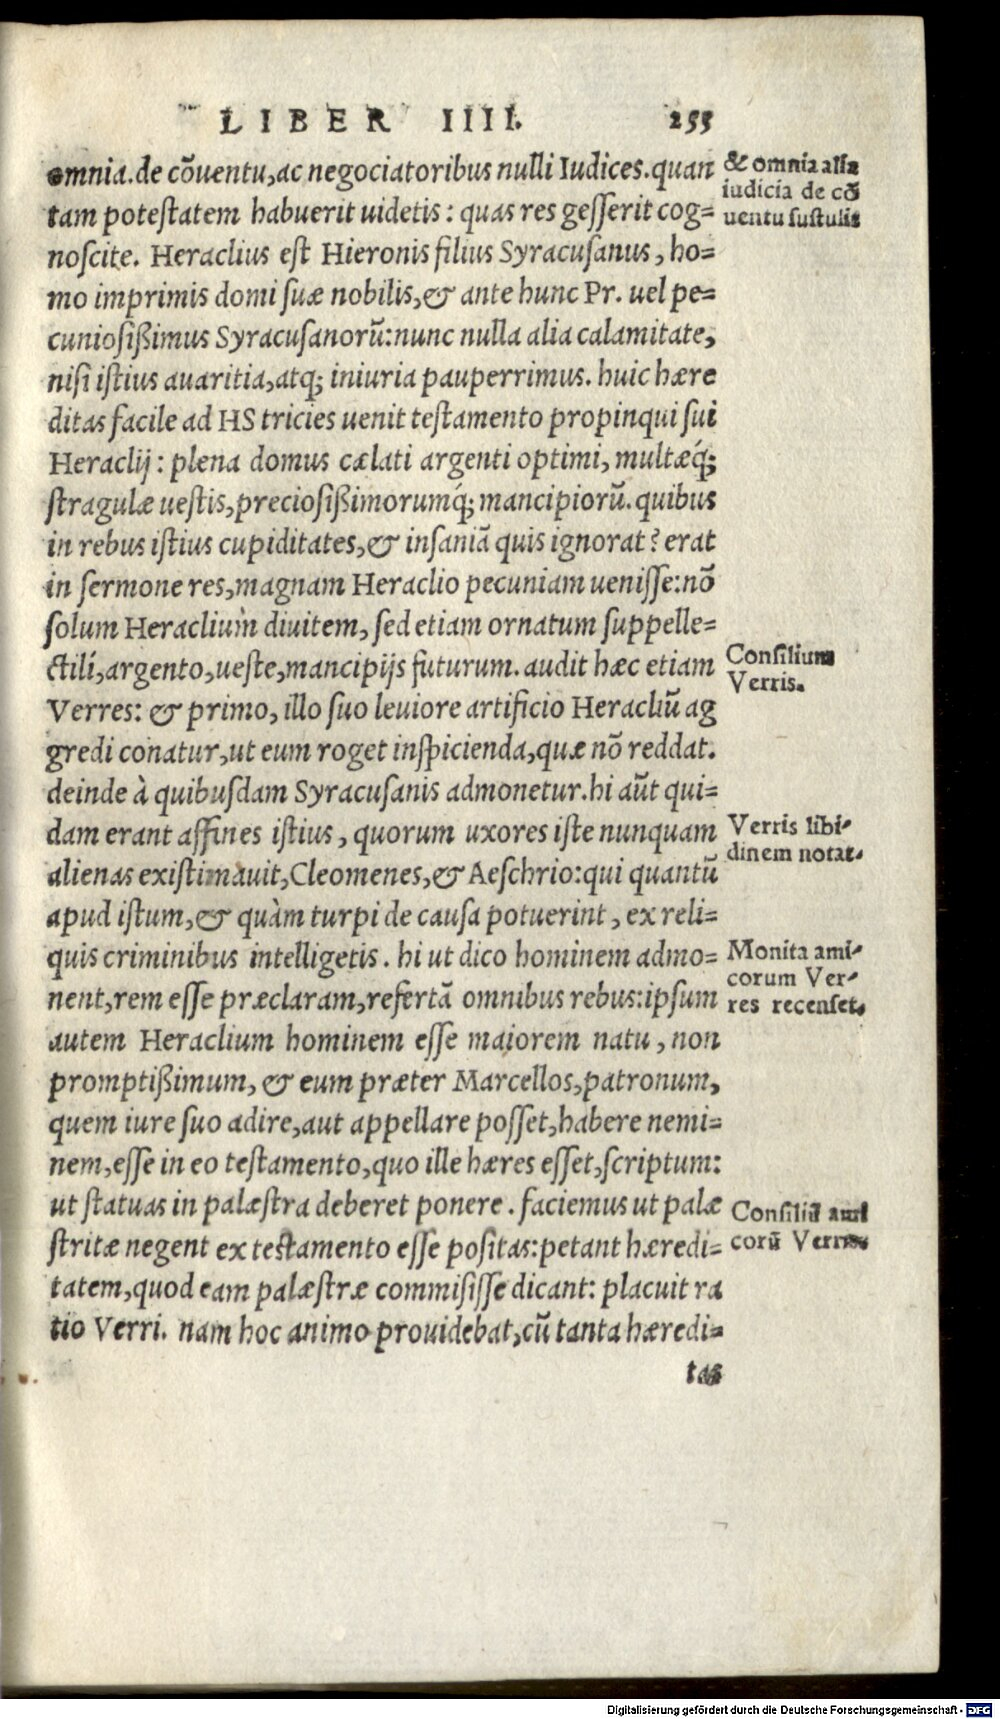 LIBER IIII. 255
omnia. de cõuentu, ac negociatoribus nulli Iudices. quan
tam potestatem habuerit uidetis: quas res gesserit cog=
noscite. Heraclius est Hieronis filius Syracusanus, ho=
mo imprimis domi suæ nobilis, & ante hunc Pr. uel pe=
cuniosißimus Syracusanorũ: nunc nulla alia calamitate,
nisi istius auaritia, atq; iniuria pauperrimus. huic hære
ditas facile ad HS tricies uenit testamento propinqui sui
Heraclij: plena domus cælati argenti optimi, multæq́;
stragulæ uestis, preciosißimorumq́; mancipiorũ. quibus
in rebus istius cupiditates, & insaniã quis ignorat? erat
in sermone res, magnam Heraclio pecuniam uenisse: nõ
solum Heraclium diuitem, sed etiam ornatum suppelle=
ctili, argento, ueste, mancipijs futurum. audit hæc etiam
Verres: & primo, illo suo leuiore artificio Heracliũ ag
gredi conatur, ut eum roget inspicienda, quæ nõ reddat.
deinde à quibusdam Syracusanis admonetur. hi aũt qui=
dam erant affines istius, quorum uxores iste nunquam
alienas existimauit, Cleomenes, & Aeschrio: qui quantũ
apud istum, & quàm turpi de causa potuerint, ex reli=
quis criminibus intelligetis. hi ut dico hominem admo=
nent, rem esse præclaram, refertã omnibus rebus: ipsum
autem Heraclium hominem esse maiorem natu, non
promptißimum, & eum præter Marcellos, patronum,
quem iure suo adire, aut appellare posset, habere nemi=
nem, esse in eo testamento, quo ille hæres esset, scriptum:
ut statuas in palæstra deberet ponere. faciemus ut palæ
stritæ negent ex testamento esse positas: petant hæredi=
tatem, quod eam palæstræ commisisse dicant: placuit ra
tio Verri. nam hoc animo prouidebat, cũ tanta hæredi=
tas
& omnia alia
iudicia de cõ
uentu sustulit
Consilium
Verris.
Verris libi-
dinem notat.
Monita ami-
corum Ver-
res recenset.
Consiliũ ami
corũ Verris
Digitalisierung gefördert durch die Deutsche Forschungsgemeinschaft - DFG